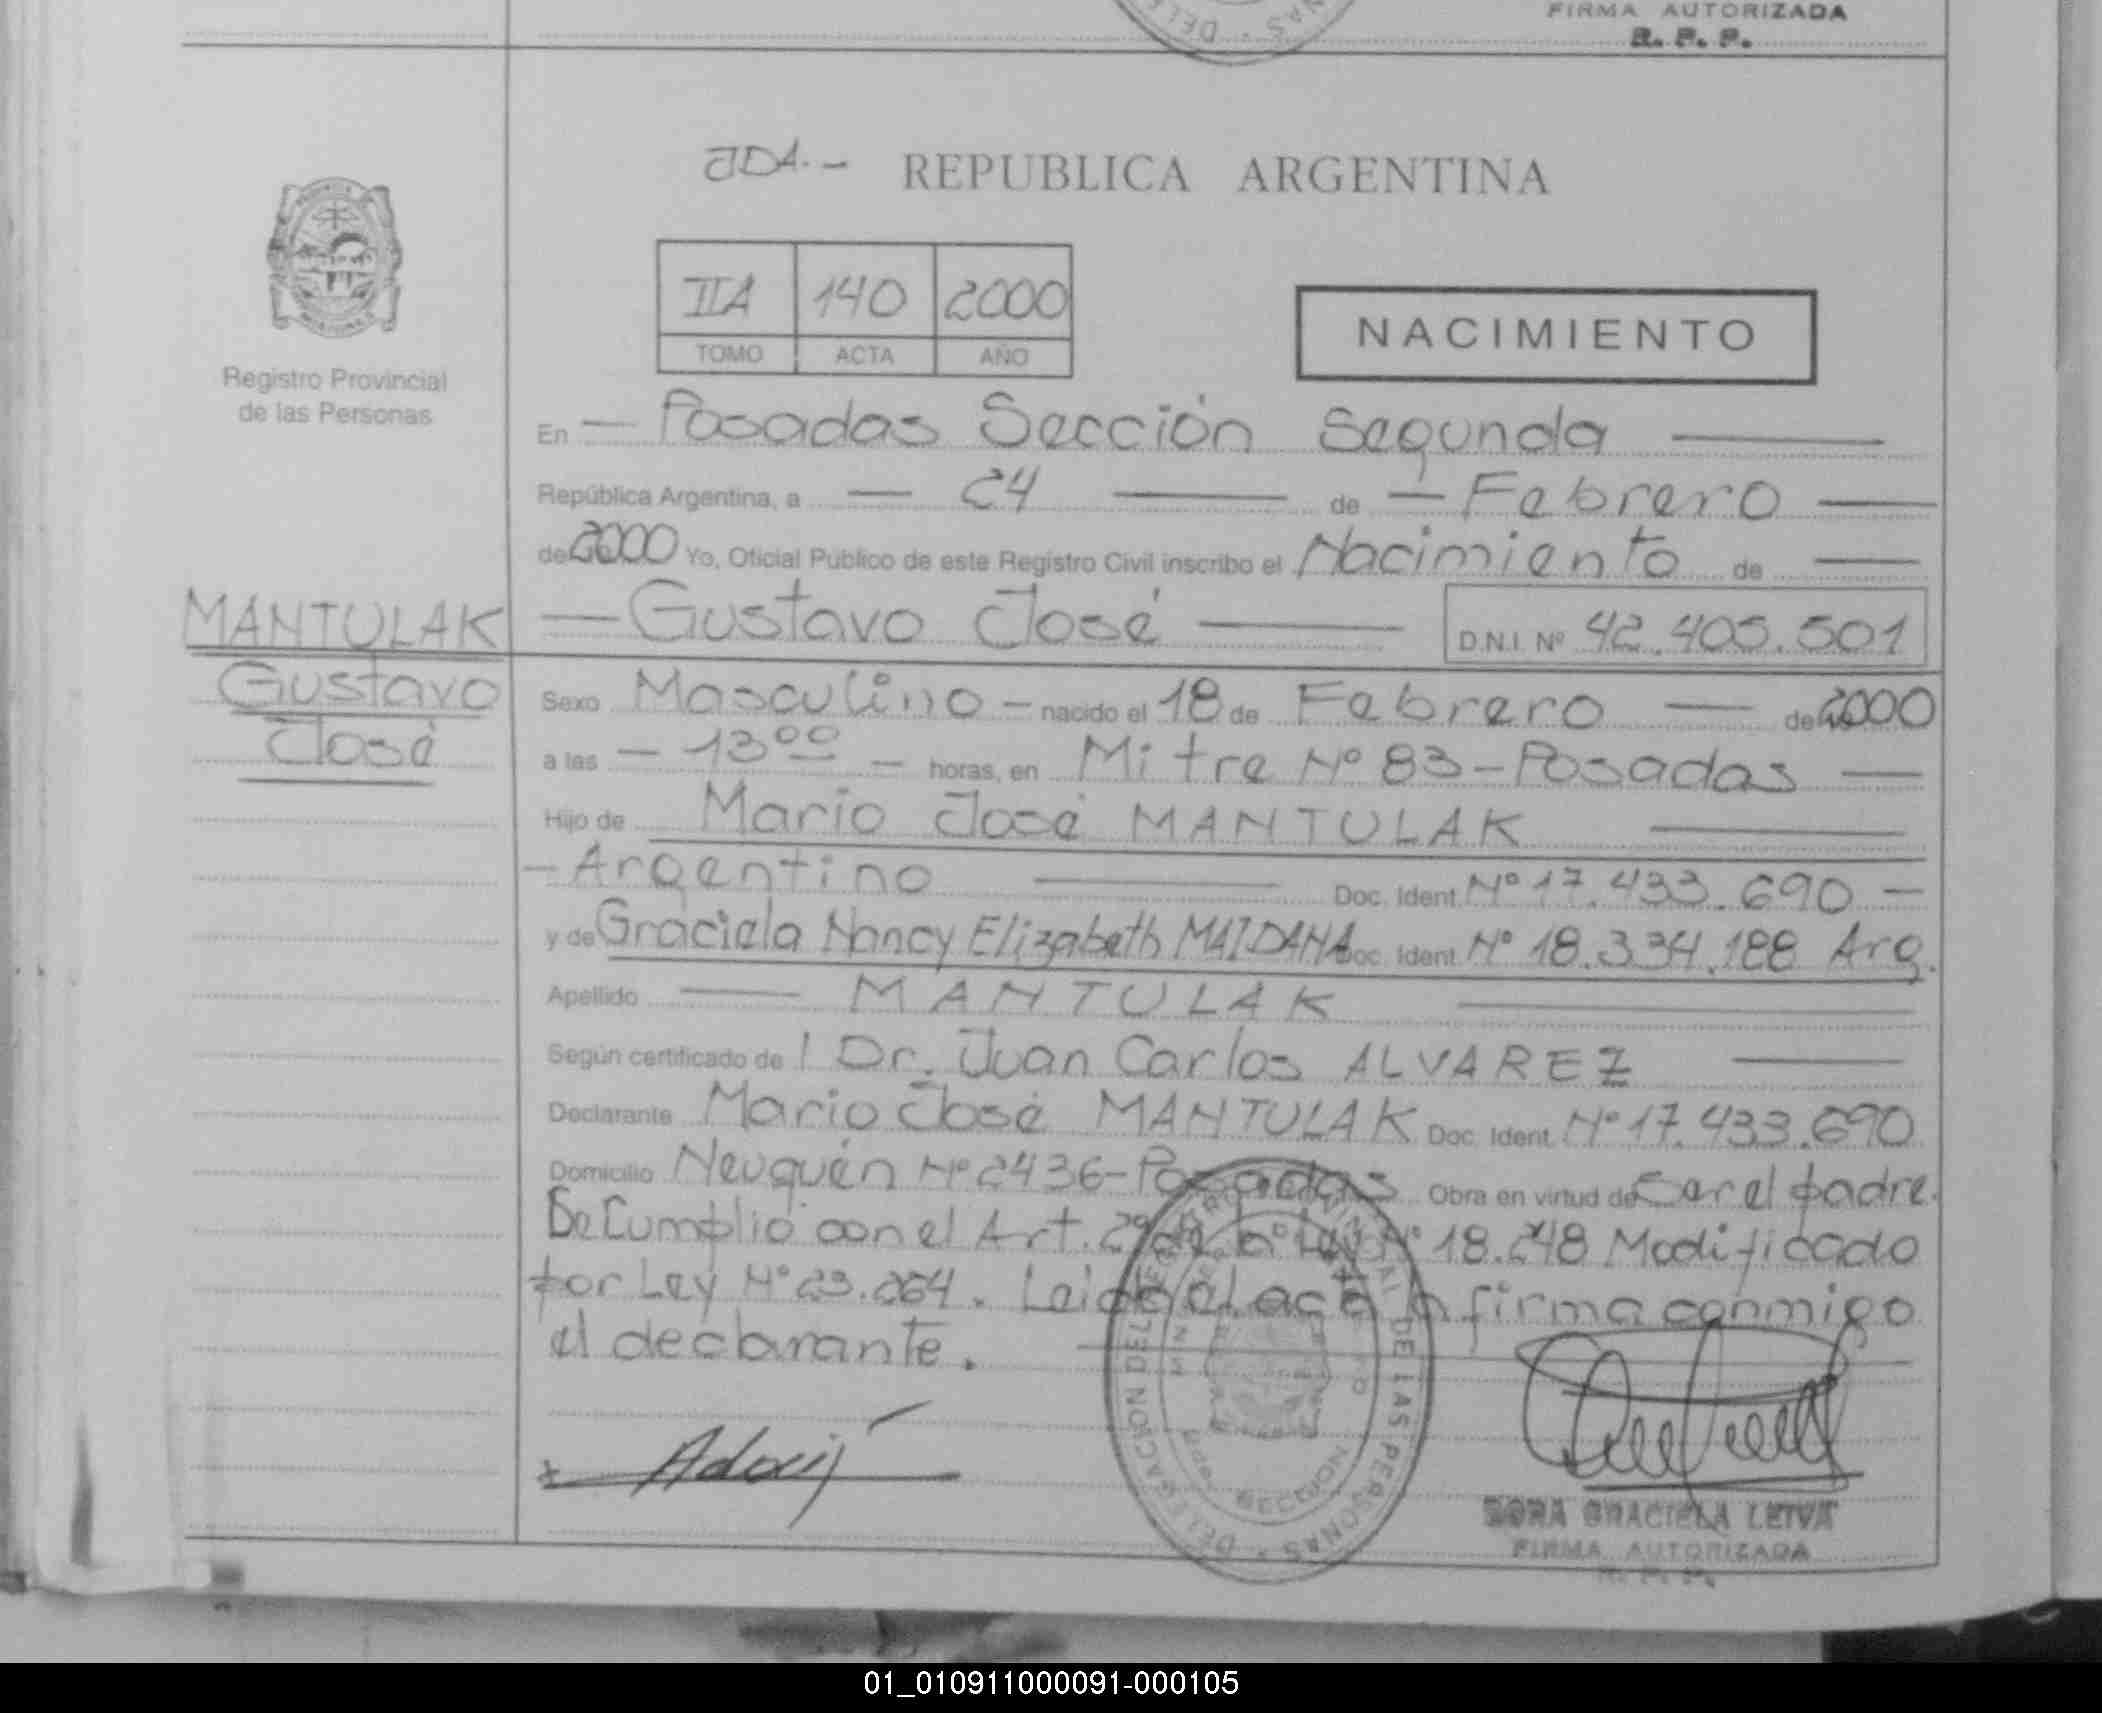 FIRMA AUTORIZADA
R. P. P.
JDA.- REPUBLICA ARGENTINA
IIA 140 2000
TOMO ACTA AÑO
NACIMIENTO
Registro Provincial
de las Personas
En — Posadas Sección Segunda —
República Argentina, a — 24 — de — Febrero —
de 2000 Yo, Oficial Público de este Registro Civil inscribo el Nacimiento de —
MANTULAK
Gustavo
José
— Gustavo José — D.N.I. Nº 42.405.501
Sexo Masculino — nacido el 18 de Febrero — de 2000
a las — 13⁰⁰ — horas, en Mitre Nº 83 - Posadas —
Hijo de Mario José MANTULAK —
— Argentino — Doc. Ident. Nº 17.433.690 —
y de Graciela Nancy Elizabeth MAIDANA Doc. Ident. Nº 18.334.188 Arg.
Apellido — MANTULAK —
Según certificado de l Dr. Juan Carlos ALVAREZ —
Declarante Mario José MANTULAK Doc. Ident. Nº 17.433.690
Domicilio Neuquén Nº 2436 - Posadas Obra en virtud de Ser el padre.
Se Cumplió con el Art. 29 de la Ley Nº 18.248 Modificado
por Ley Nº 23.264. Leida el acta la firma conmigo
el declarante.
DELEGACION DEL REGISTRO PROVINCIAL DE LAS PERSONAS
SECCION
DORA GRACIELA LEIVA
FIRMA AUTORIZADA
R. P. P.
01_010911000091-000105